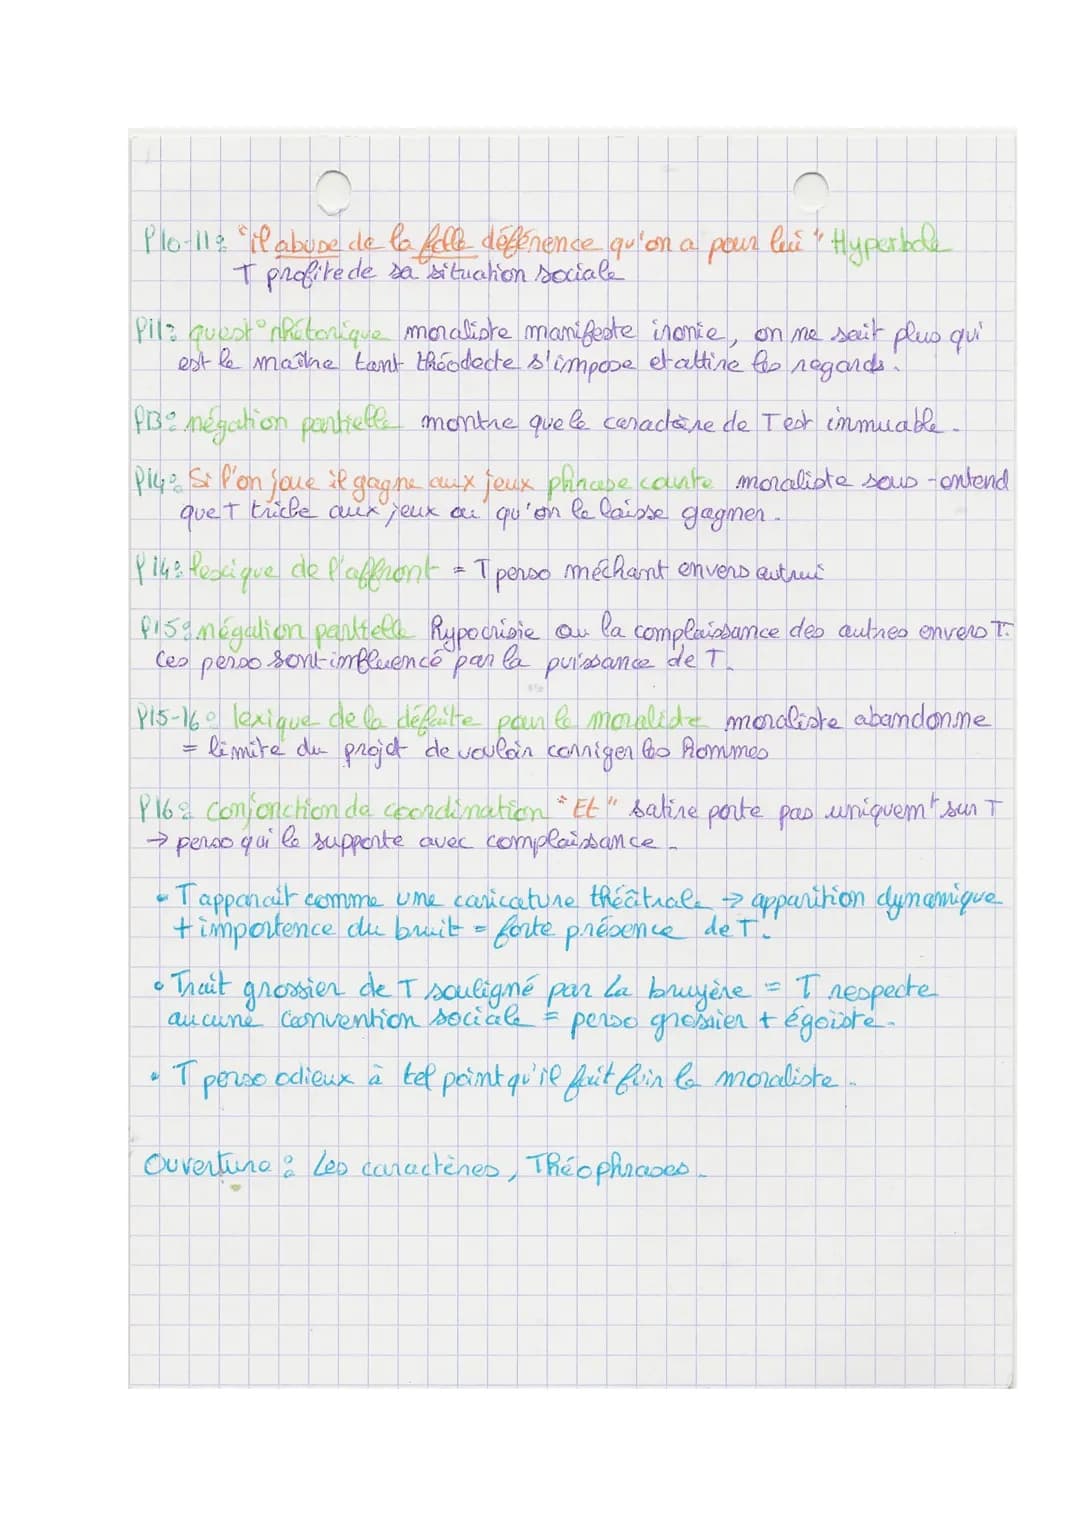 l10-11: "il abuse de la folle déférence qu'on a pour lui" Hyperbole
T profite de sa situation sociale
l11: quest° rhétorique moraliste manifeste ironie, on ne sait plus qui
est le maître tant théodecte s'impose et attire les regards.
l13: négation partielle montre que le caractère de T est immuable.
l14: Si l'on joue il gagne aux jeux phrase courte moraliste sous-entend
que T triche aux jeux ou qu'on le laisse gagner.
l14: lexique de l'affront = T perso méchant envers autrui
l15: négation partielle hypocrisie ou la complaissance des autres envers T.
Ces perso sont influencé par la puissance de T.
l15-16: lexique de la défaite pour le moraliste moraliste abandonne
= limite du projet de vouloir corriger les hommes
l16: conjonction de coordination "Et" satire porte pas uniquemt sur T
→ perso qui le supporte avec complaissance.
• T apparait comme une caricature théâtrale → apparition dynamique
+ importence du bruit = forte présence de T.
• Trait grossier de T souligné par La bruyère = T respecte
aucune convention sociale = perso grossier + égoïste.
• T perso odieux à tel point qu'il fait fuir le moraliste.
Ouverture : Les caractères, Théophrases.